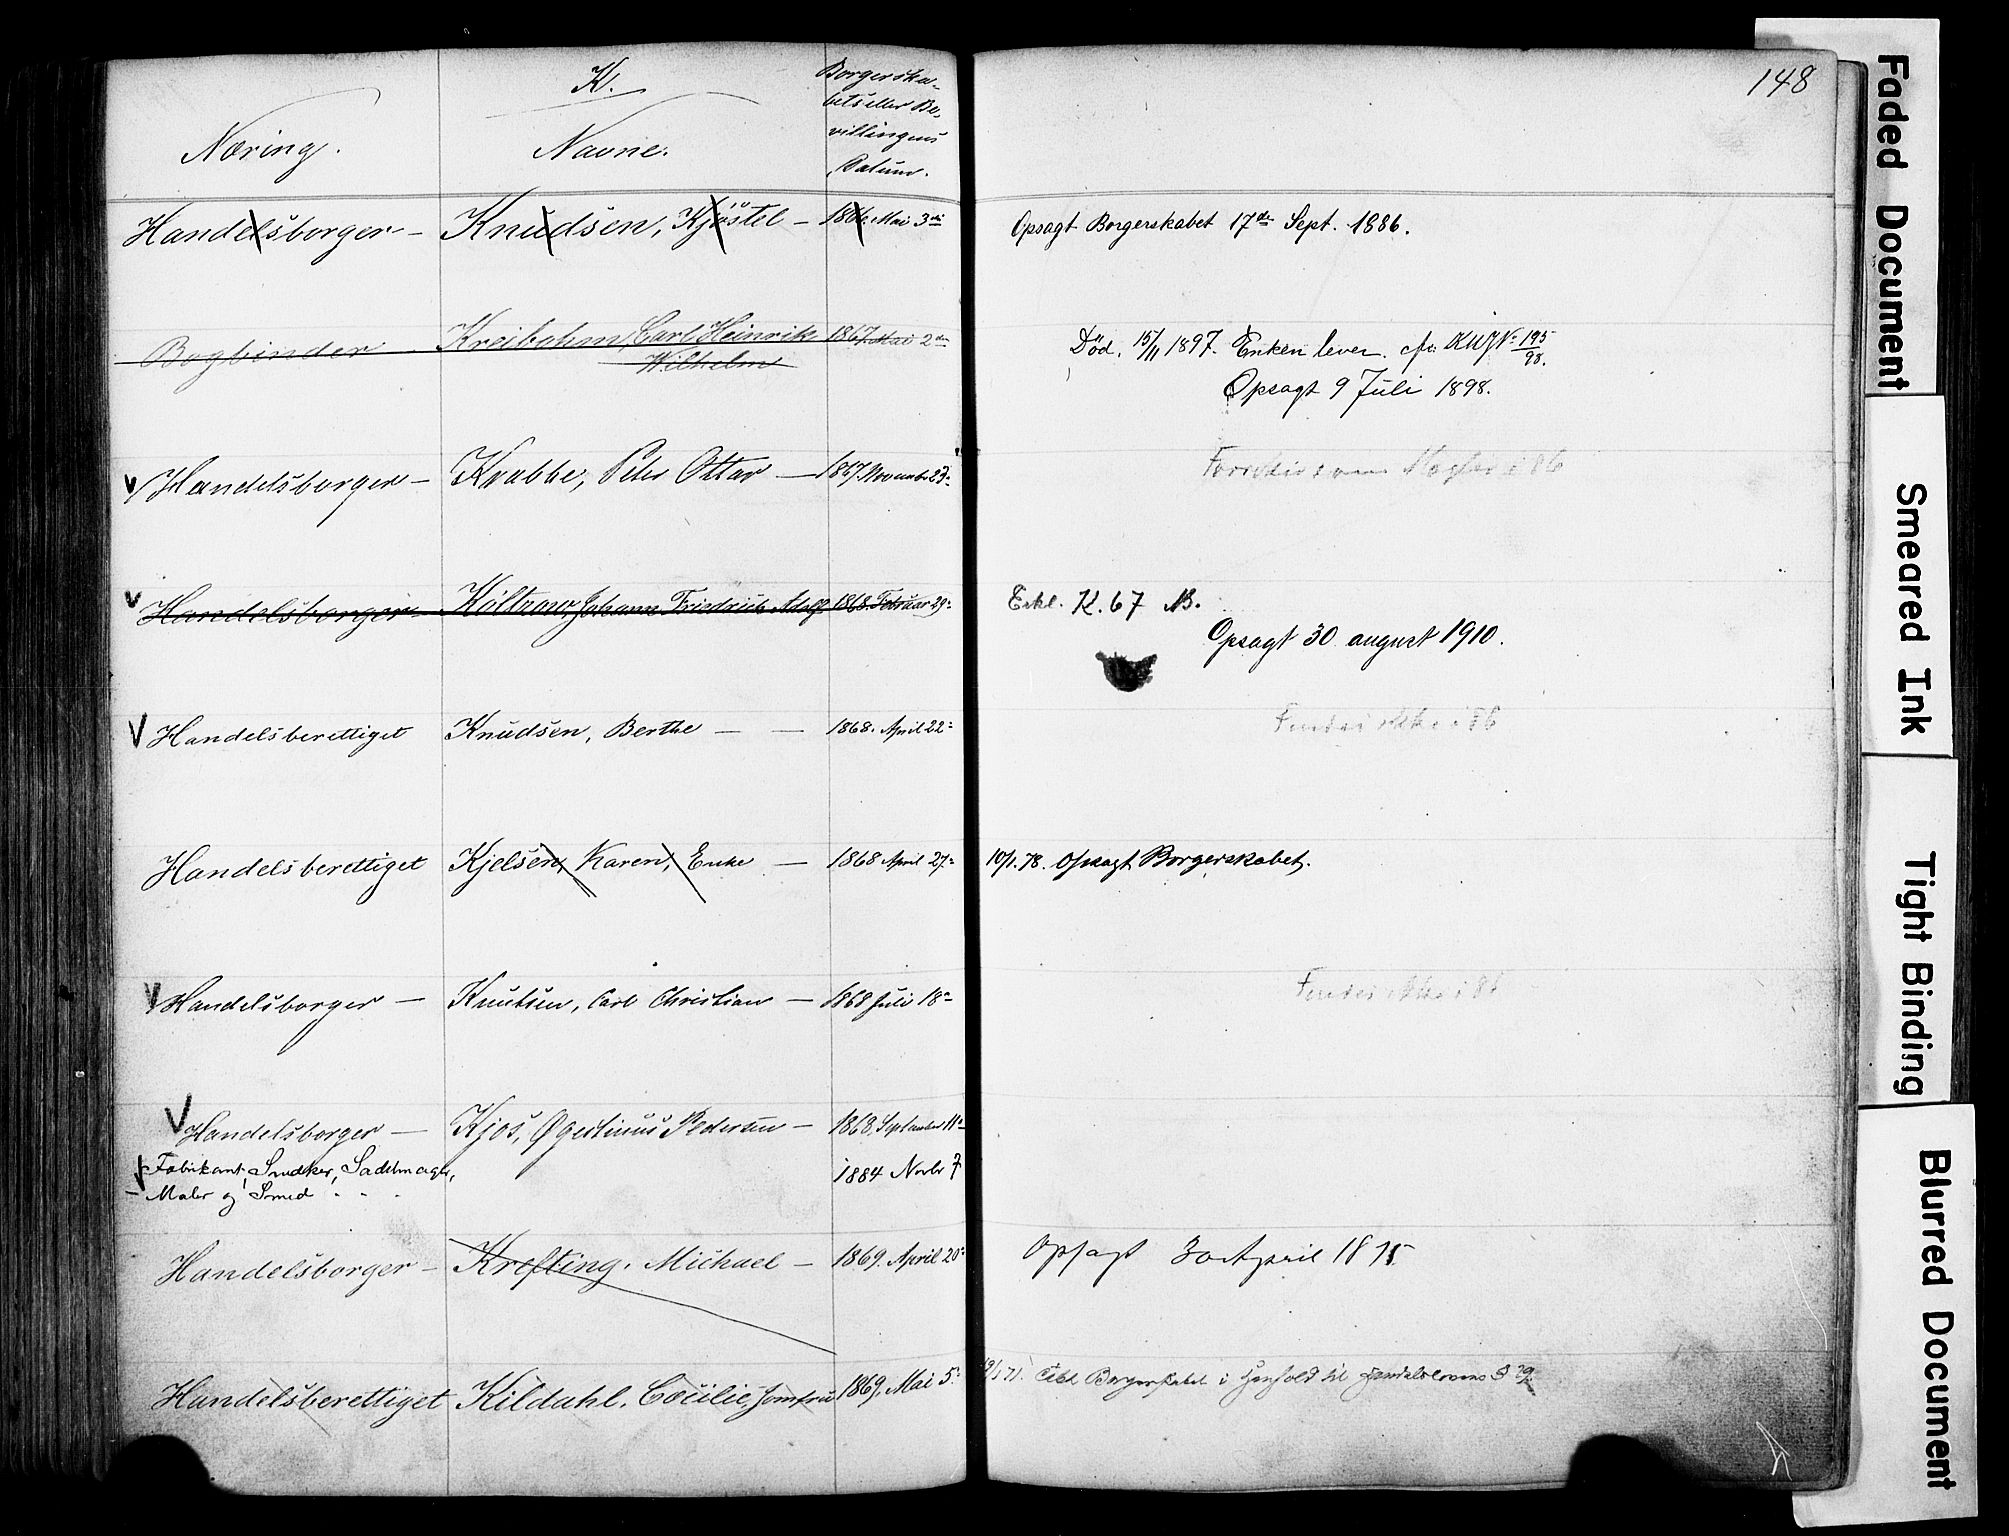 148
K.
Næring.
Navne.
Borgerska-
bets eller Be-
villingens
Datum.
Handelsborger - Knudsen, Kjöstel - 1866. Mai 3die Opsagt Borgerskabet 17de Sept. 1886.
Bogbinder Kreibohm, Carl Heinrik 1867. Mai 2den Död. 15/11 1897. Enken lever. cfr. KUJN: 195/98.
Wilhelm
Opsagt 9 Juli 1898.
V Handelsborger - Krabbe, Peter Ottar - 1867. November 23:
i 86
V Handelsborger - Költzow, Johann Friedrich Adolf 1868. Februar 29: Erkl. K. 67 AB.
Opsagt 30 august 1910.
V Handelsberettiget Knudsen, Berthe - - 1868. April 22: Findes ikke i 86
Handelsberettiget Kjelsen, Karen, Enke - 1868 April 27: 10/1. 78. Opsagt Borgerskabet.
V Handelsborger - Knutsen, Carl Christian - 1868 Juli 18: Findes ikke i 86
V Handelsborger - Kjos, Øgestinus Pedersen - 1868, September 11:
Fabrikant, Snedker, Sadelmager, 1884 Novbr 7
- Maler og Smed " "
Handelsborger - Krefting, Michael - 1869. April 20: Opsagt 30 April 1875
Handelsberettiget Kildahl, Cæcilie, Jomfru 1869. Mai 5: Borgerskabet i Henhold til Handelslovens § 29
Faded Document
Smeared Ink
Tight Binding
Blurred Document